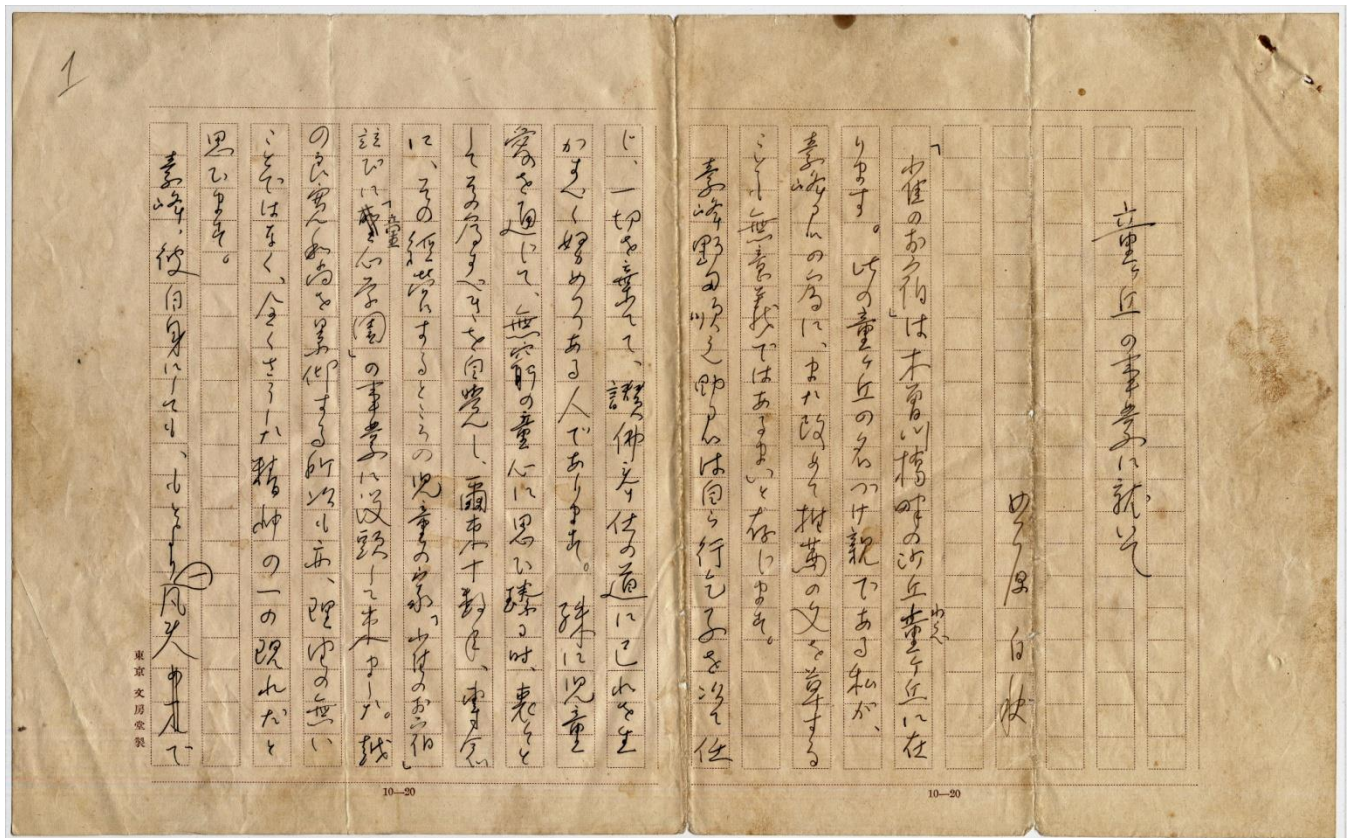 1
童ヶ丘の事業に就いて
北原白秋
「小雀のお宿」は木曽川橋畔の沙丘童ヶ丘に在
わらべ
ります。此の童ヶ丘の名づけ親である私が、
素峰君の為に、また改めて推薦の文を草する
ことも無意義ではあるまいと存じます。
素峰野田順之助君は自ら行乞子を以て任
じ、一切を棄てて、讃佛奉仕の道に己れを生
かすべく努めつつある人であります。殊に児童
愛を通じて、無窮の童心に思ひ臻る時、衷心
して為すべきを自覚し、爾来十数年、専念
に、その経営するところの児童の家「小雀のお宿」
並びに「童心学園」の事業に没頭して来ました。越
の良寛和尚を景仰する所以も亦、理由の無い
ことではなく、全くさうした精神の一の現れだと
思ひます。
素峰、彼自身にしても、もとより一凡夫で
東京 文房堂製
10—20
10—20